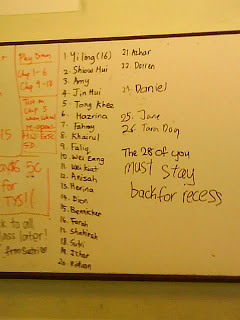 Chap 1-6
Chap 9-10
Test on
Chap 5
5C
for
to all
class later!
from Sutri
1 Yi ling (16)
2. Shiow Hui
3. Amy
4. Jin Hui
5. Tong Khee
6. Hazrina
7. Fahmy
8. Khairul
9. Faliq
10. Wei Eang
11. Wei Kiat
12. Anisah
13. Herina
14. Dian
15. Bernicker
16. Farah
17. Shahirah
18. Sutri
19. Izhar
20. Ridhwan
21. Ashar
22. Darren
23. Daniel
25. Jane
26. Tarn Doig
The 28 of you
must stay
back for recess